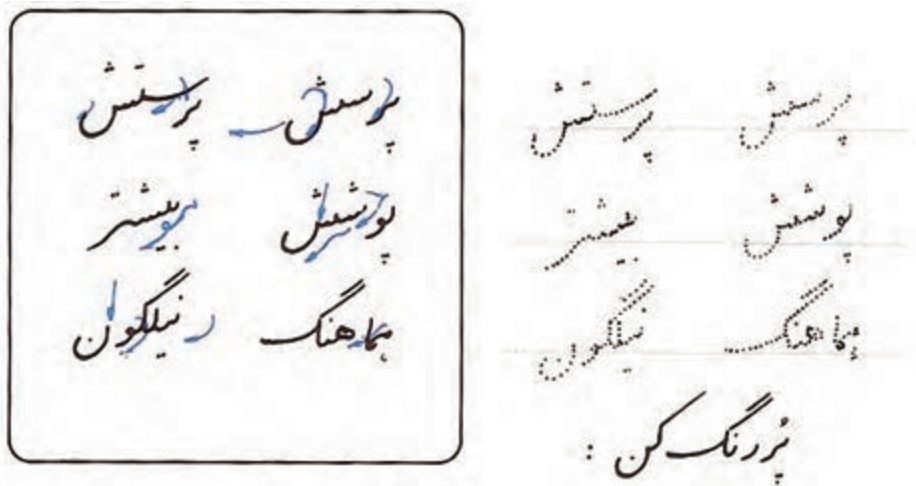 پرسش پرستش
پوشش بیشتر
هماهنگ نیلگون
پرسش پرستش
پوشش بیشتر
هماهنگ نیلگون
پُررنگ کن :